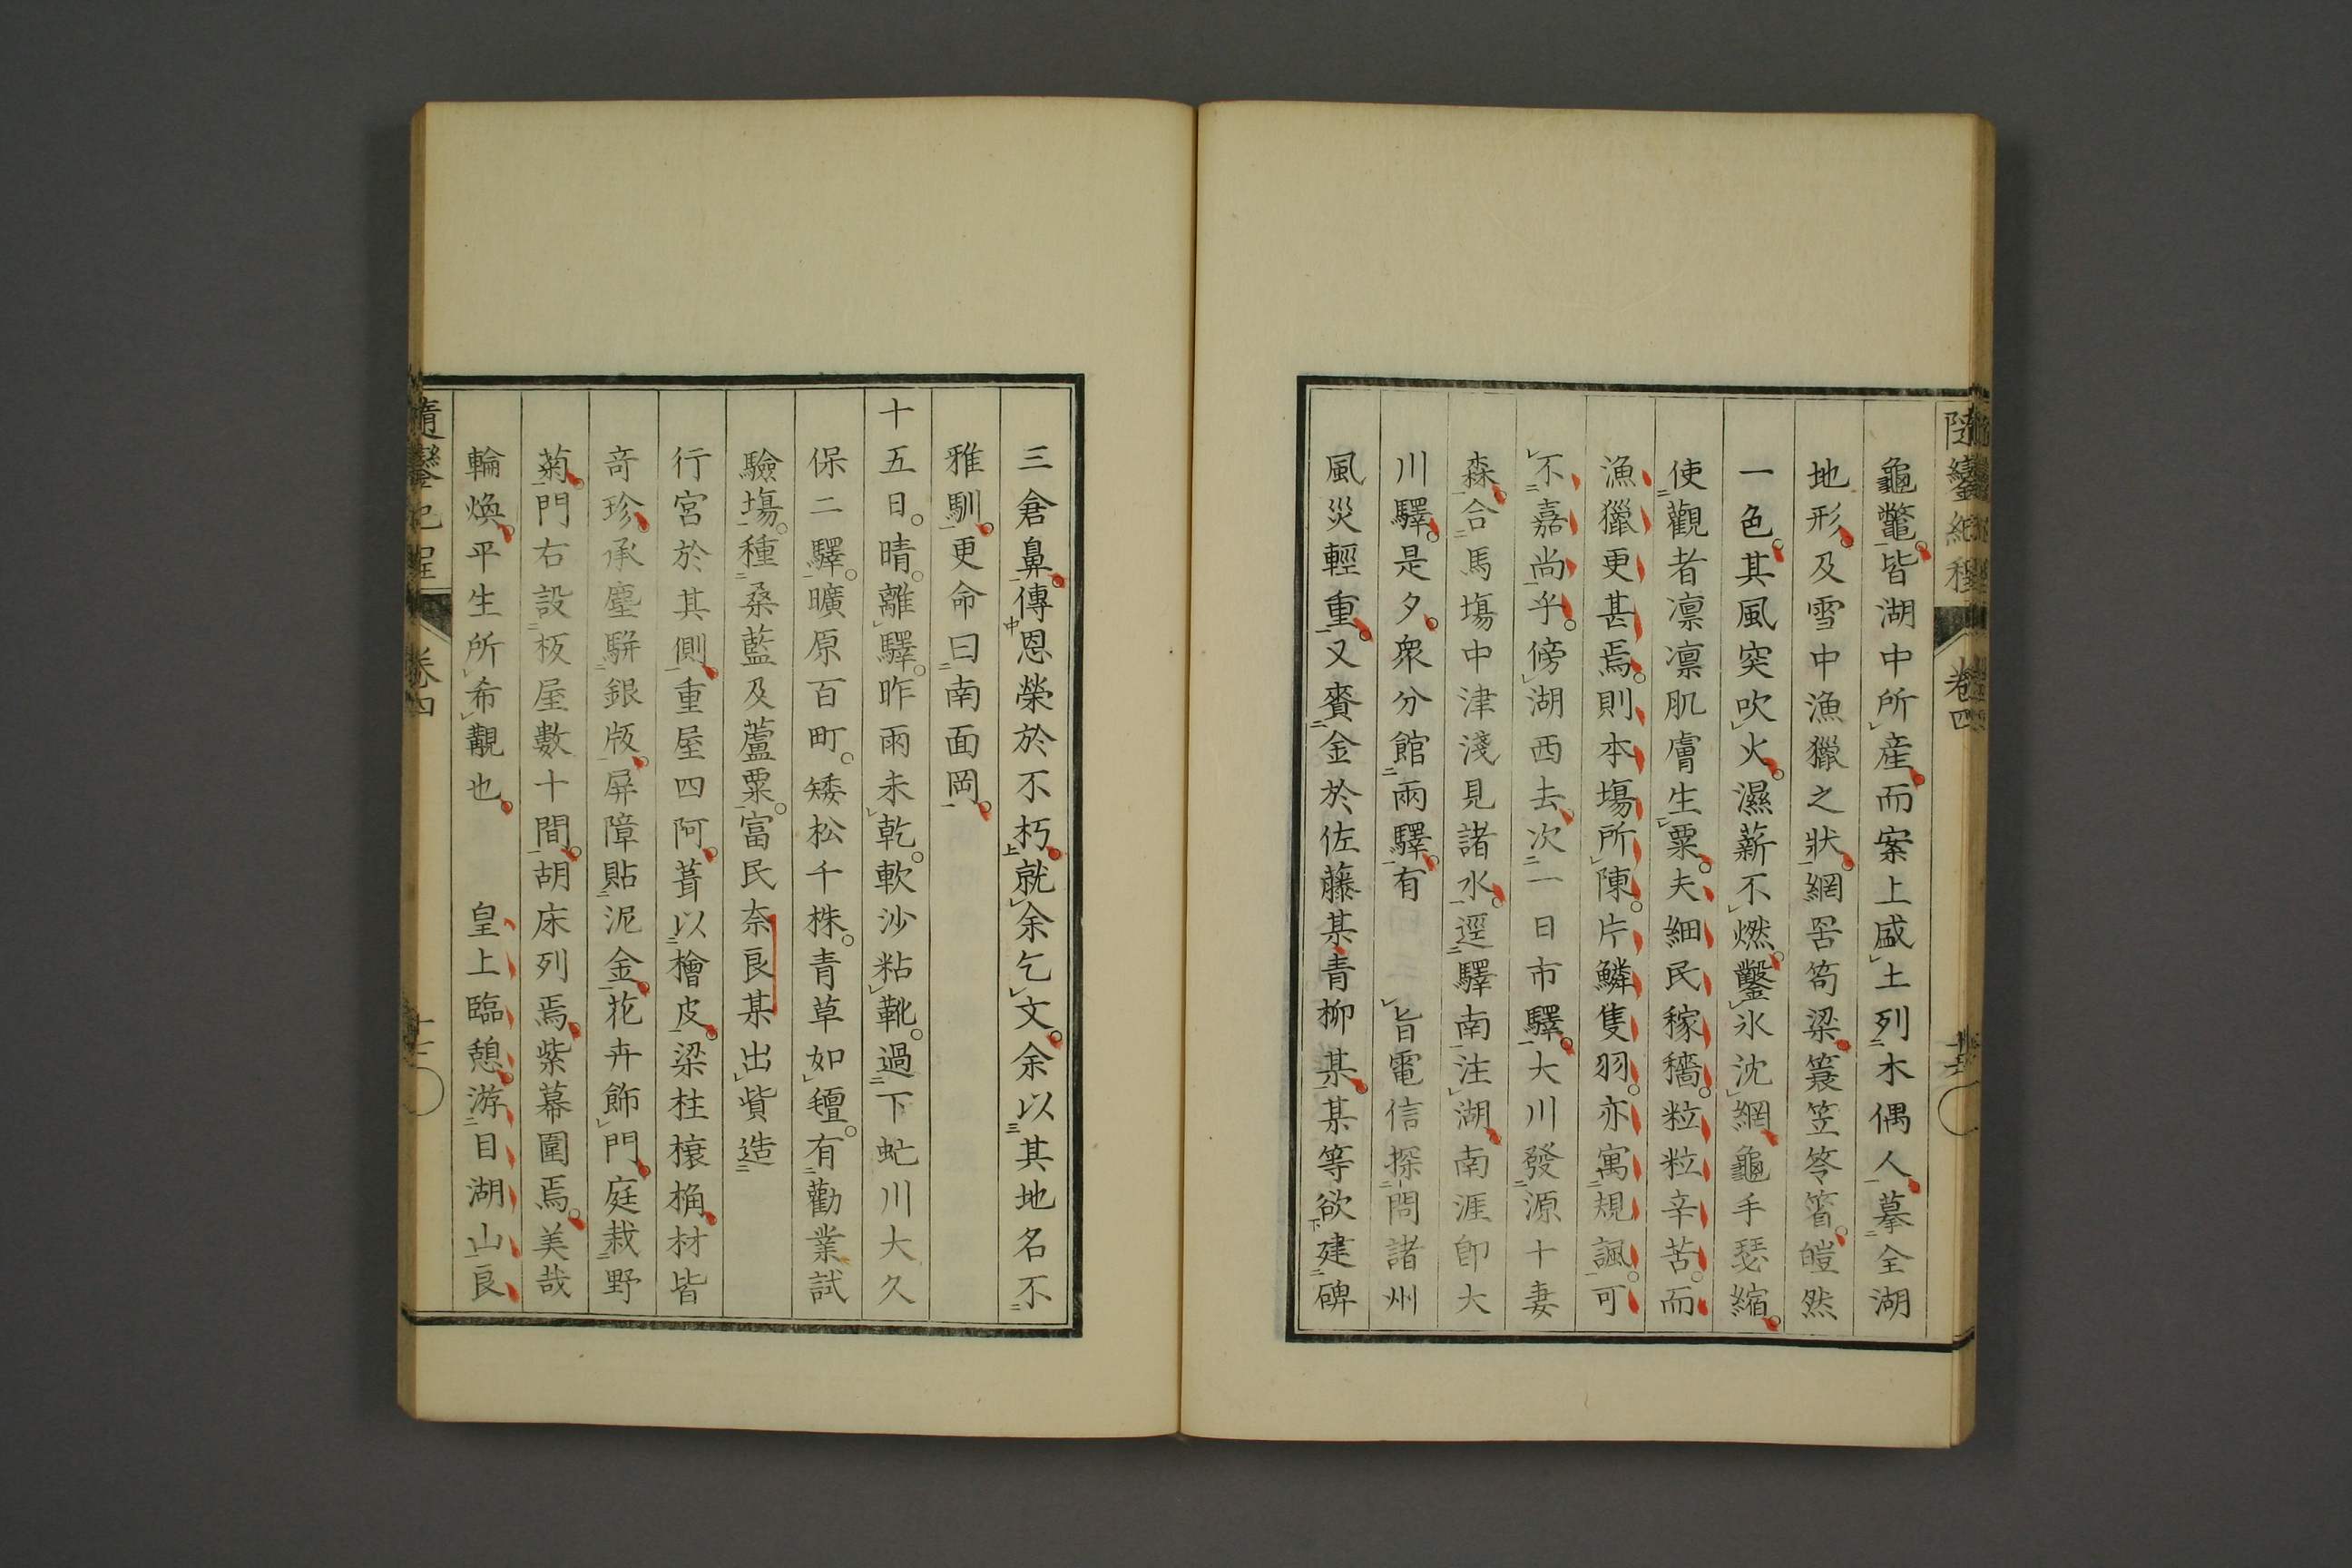 龜鼈皆湖中所產而案上盛土列木偶人摹全湖
地形及雪中漁獵之狀網罟笱梁簑笠笭箵皚然
一色其風突吹火濕薪不燃鑿氷沈網龜手瑟縮
使觀者凛凛肌膚生粟夫細民稼穡粒粒辛苦而
漁獵更甚焉則本塲所陳片鱗隻羽亦寓規諷可
不嘉尚乎傍湖西去次一日市驛大川發源十妻
森合馬塲中津淺見諸水逕驛南注湖南涯卽大
川驛是夕衆分館兩驛有 旨電信探問諸州
風災輕重又賚金於佐藤某青柳某某等欲建碑
三倉鼻傳恩榮於不朽就余乞文余以其地名不
雅馴更命曰南面岡
十五日晴離驛昨雨未乾軟沙粘靴過下虻川大久
保二驛曠原百町矮松千株青草如氊有勸業試
驗塲種桑藍及蘆粟富民奈良某出貲造
行宮於其側重屋四阿葺以檜皮梁柱榱桷材皆
奇珍承塵駢銀版屏障貼泥金花卉飾門庭栽野
菊門右設板屋數十間胡床列焉紫幕圍焉美哉
輪煥平生所希覯也 皇上臨憩游目湖山良
隨鑾紀程 卷四